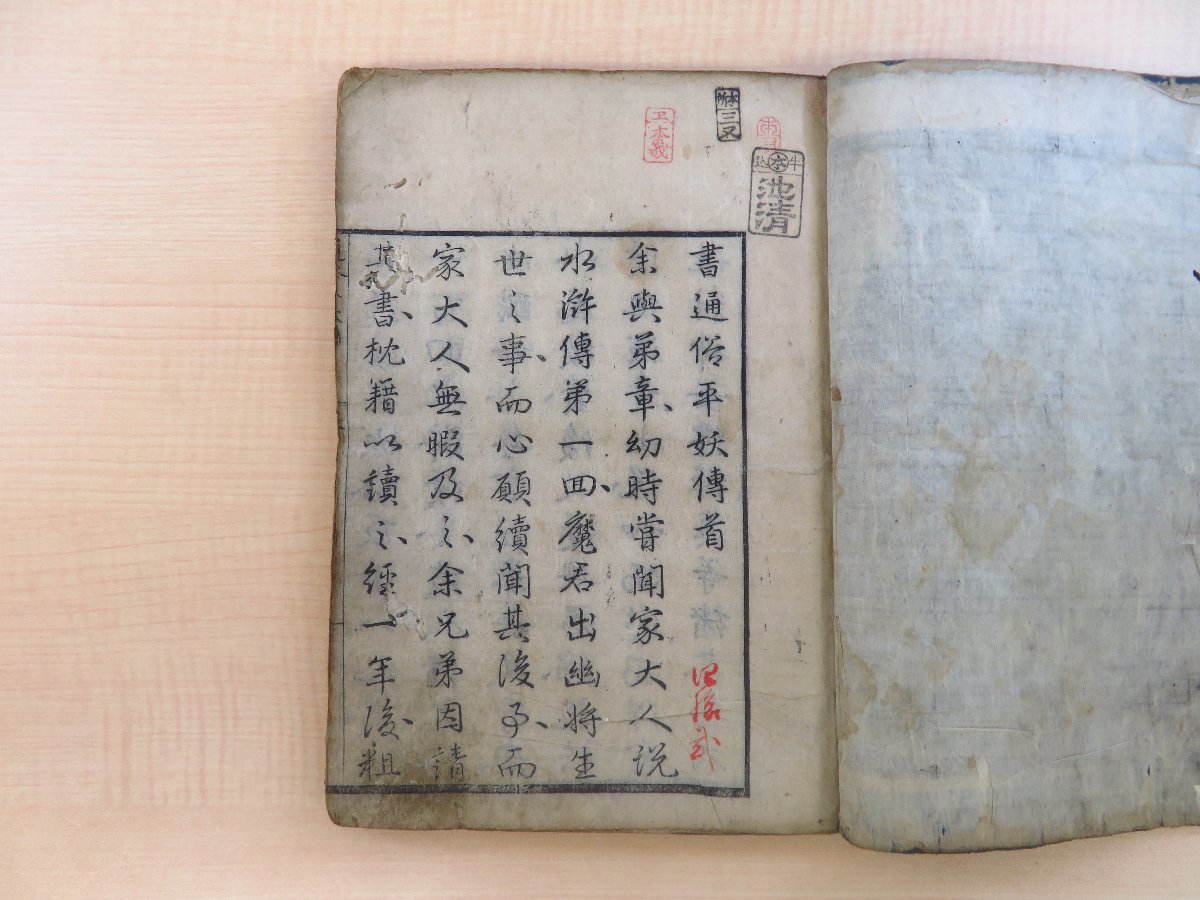 書通俗平妖傳首
余與弟章幼時嘗聞家大人説
水滸傳第一回魔君出幽將生
世之事而心願續聞其後事而
家大人無暇及之余兄弟因請
其書枕籍以讀之經一年後粗
本三又
池清